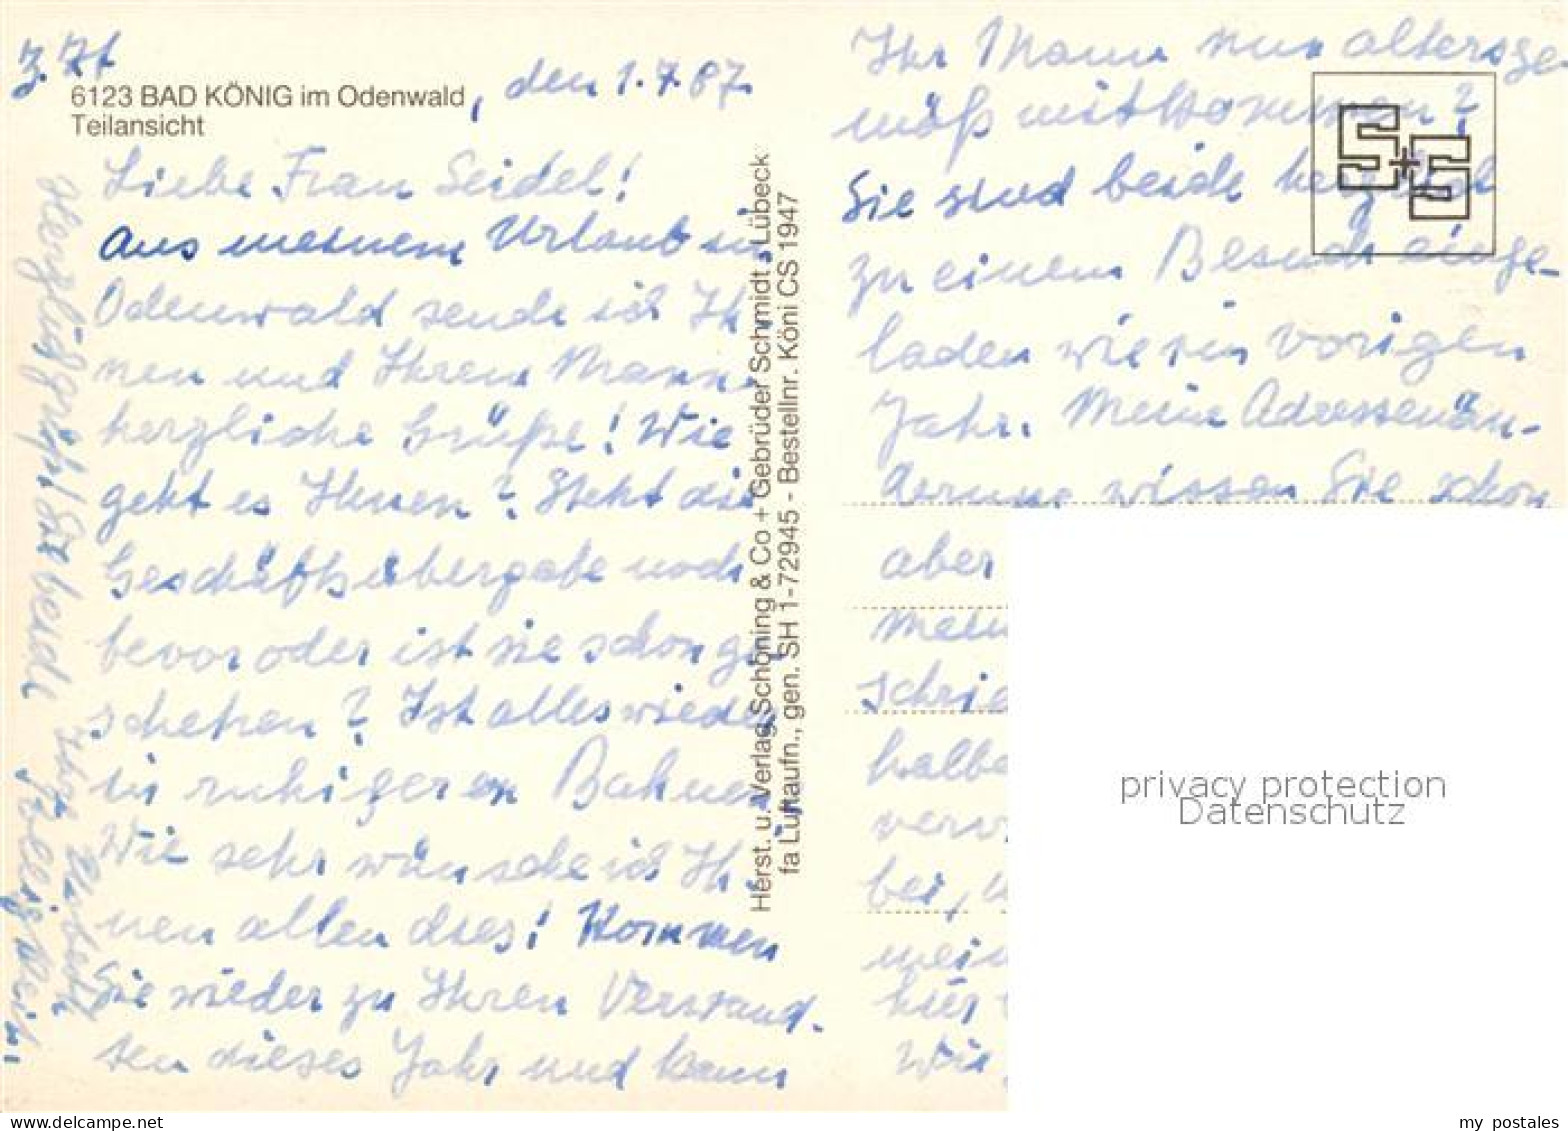 z. Zt
6123 BAD KÖNIG im Odenwald, den 1.7.87.
Teilansicht
Liebe Frau Seidel!
Aus meinem Urlaub im
Odenwald sende ich Ih
nen und Ihrem Mann
herzliche Grüße! Wie
geht es Ihnen? Steht die
Geschäftsübergabe noch
bevor oder ist sie schon ge
schehen? Ist alles wieder
in ruhigeren Bahnen
Wie sehr wünsche ich Ih
nen allen dies! Kommen
Sie wieder zu Ihren Verwand-
ten dieses Jahr und kann
Herzlichst grüßt Sie beide Ihre
Herst. u. Verlag Schöning & Co + Gebrüder Schmidt, Lübeck
fa Luftaufn., gen. SH 1-72945 - Bestellnr. Köni CS 1947
Ihr Mann nun altersge-
mäß mitkommen?
Sie sind beide herzlich
zu einem Besuch einge-
laden wie im vorigen
Jahr. Meine Adressenän-
derung wissen Sie schon
aber
mein
schrie
halbe
verw
bei, u
mein
hier
Wie
S+S
privacy protection
Datenschutz
delcampe.net
my_postales